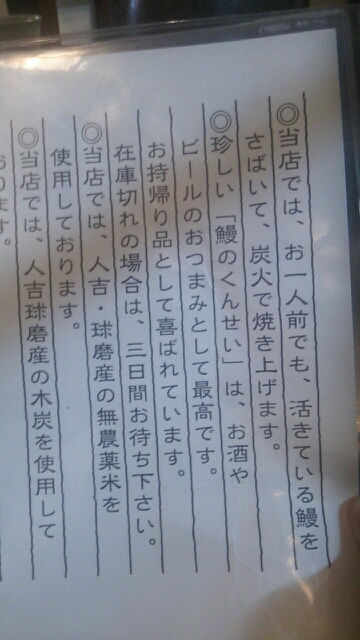 ◎当店では、お一人前でも、活きている鰻を
さばいて、炭火で焼き上げます。
◎珍しい「鰻のくんせい」は、お酒や
ビールのおつまみとして最高です。
お持帰り品として喜ばれています。
在庫切れの場合は、三日間お待ち下さい。
◎当店では、人吉・球磨産の無農薬米を
使用しております。
◎当店では、人吉球磨産の木炭を使用して
おります。